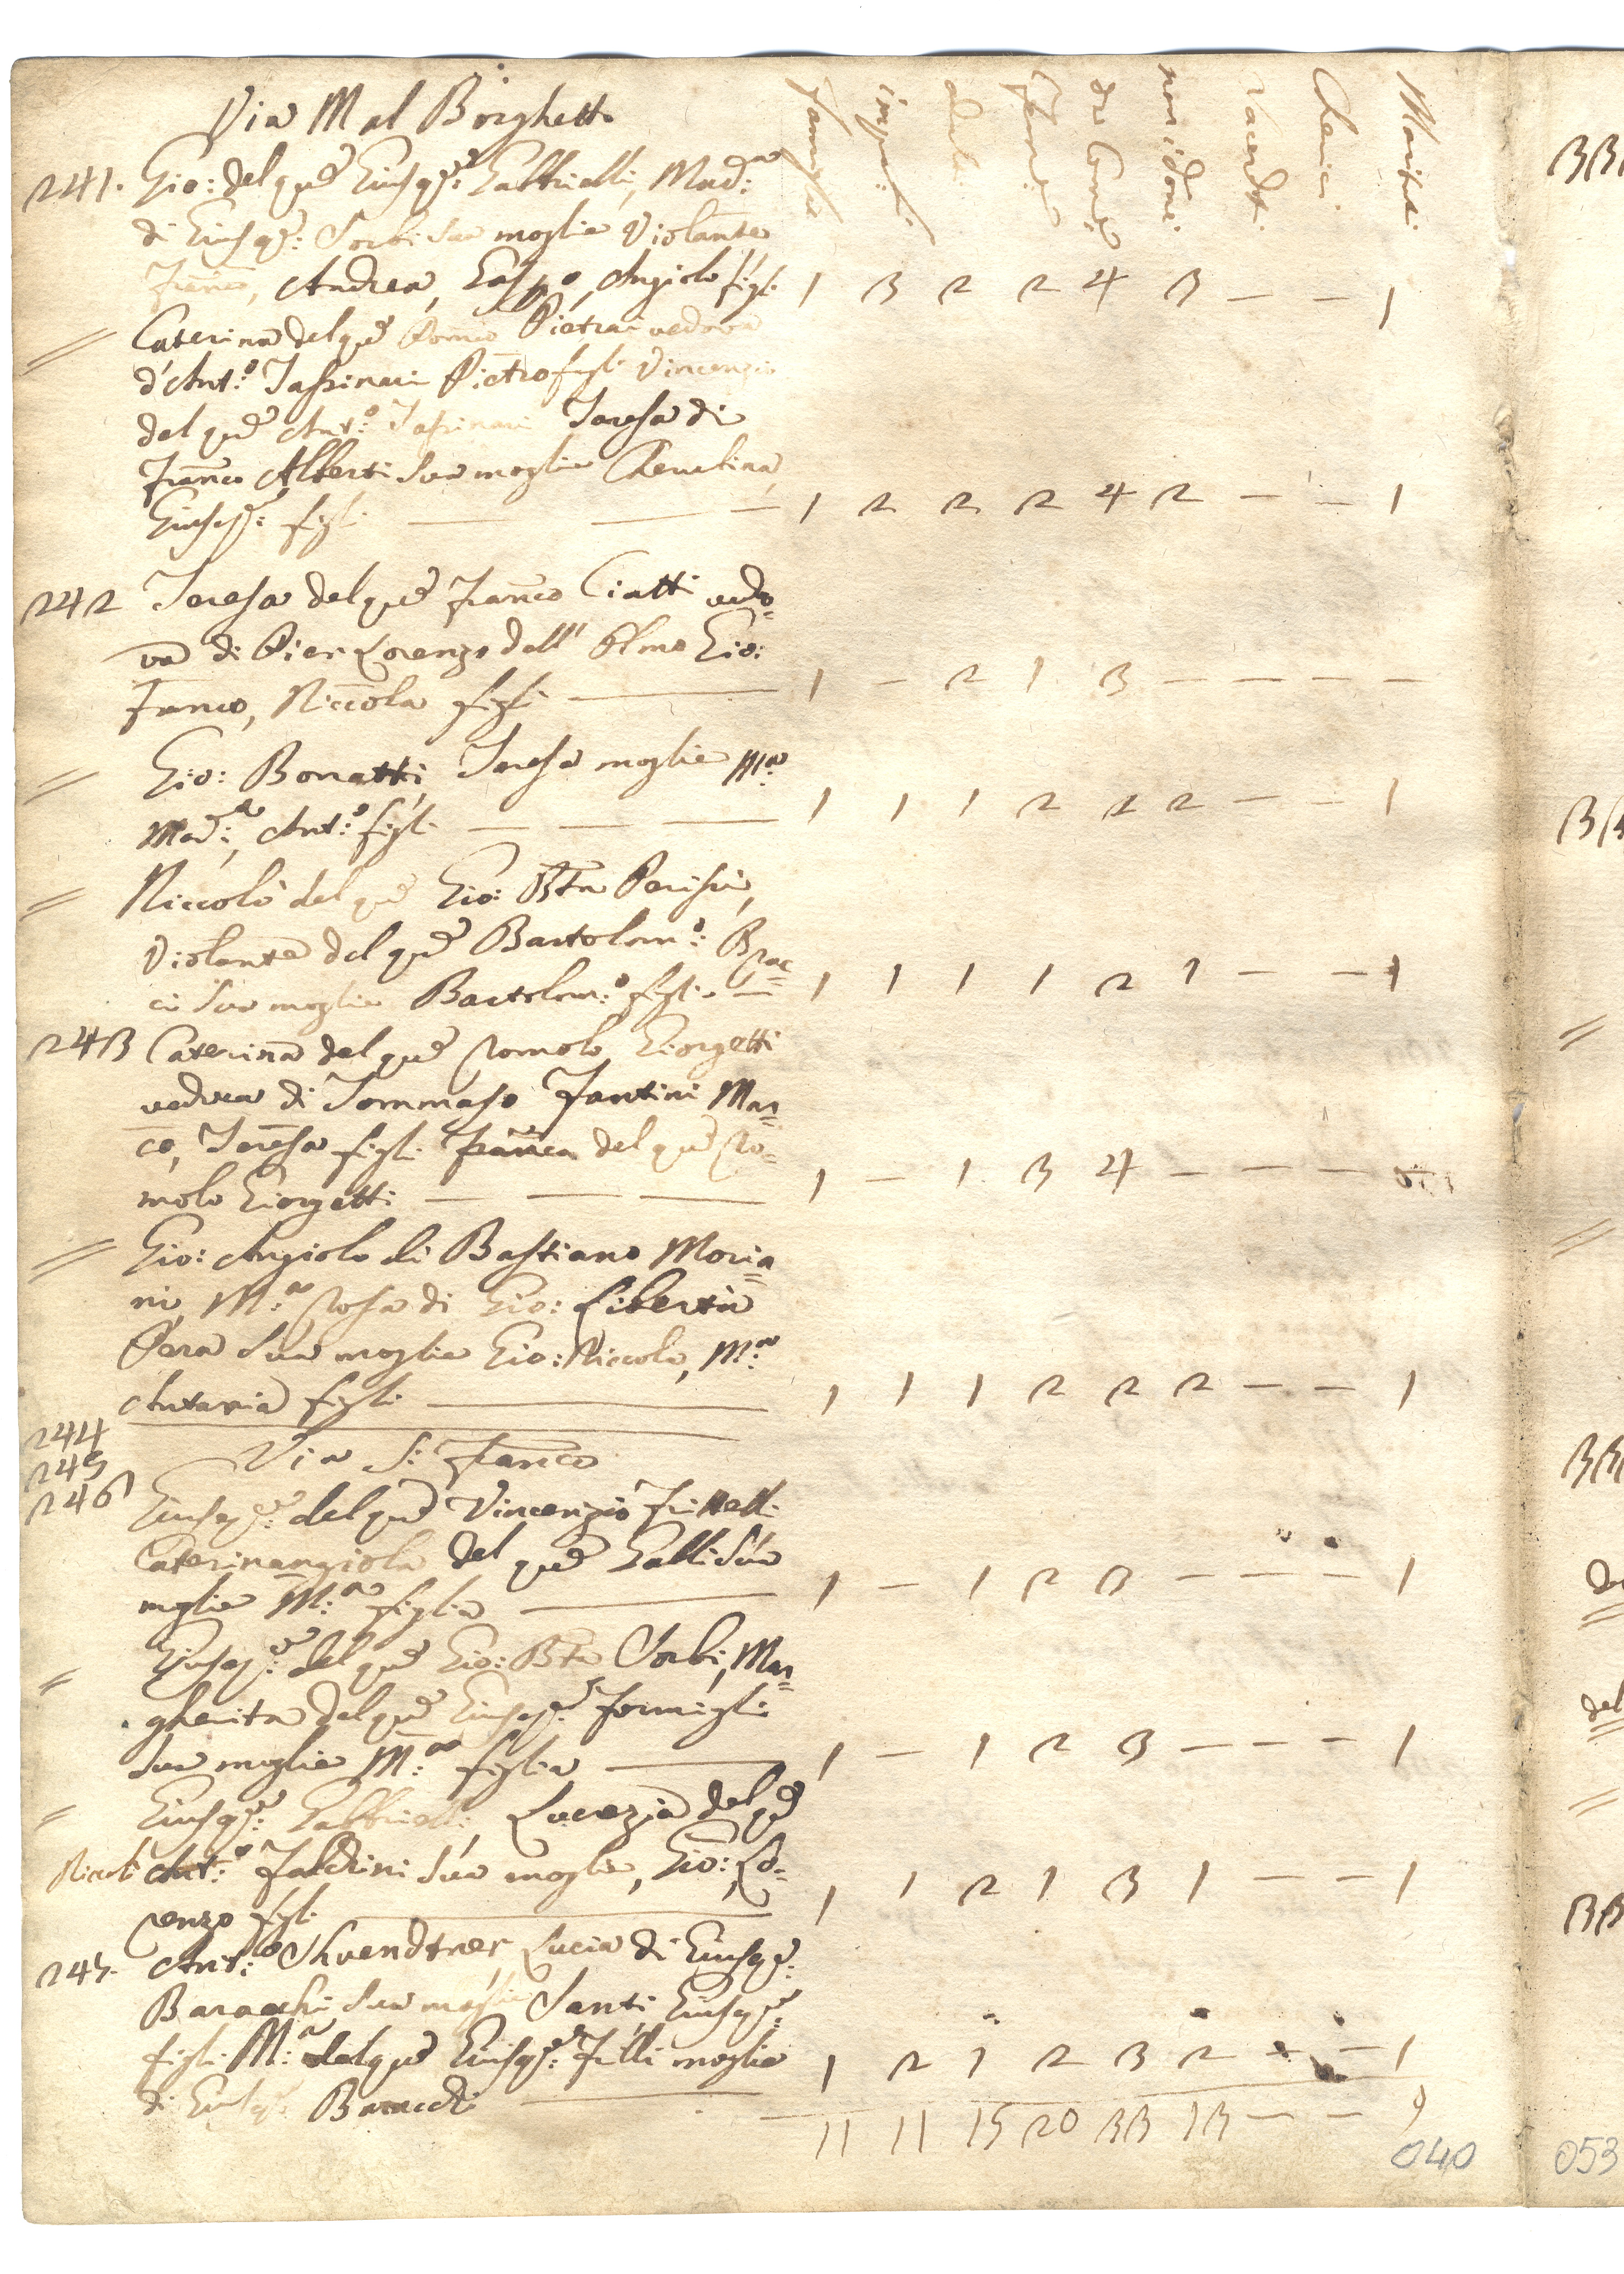 Via Mal Borghetto
Famiglie impub: adul: Fem: da Com: non idone: Sacerd: Cherici Maritat:
241. Gio: del qu: Gius:e Gabbrielli, Mad:a
di Gius:e Sorbi sua moglie Violante
Franco, Andrea, Gasp:o, Angiolo figli 1 3 2 2 4 3 — — 1
// Caterina del qu: Romo Pietrai vedova
d'Ant:o Tassinari Pietro figli Vincenzio
del qu: Ant:o Tassinari Teresa di
Franco Alberti sua moglie Cherubina
Gius:e figli — — — 1 2 2 2 4 2 — — 1
242 Teresa del qu: Franco Ciatti vedo=
va di Pier Lorenzo dell' Olmo Gio:
Franco, Niccola figli — 1 — 2 1 3 — — — —
// Gio: Bonatti, Teresa moglie M:a
Mad:a, Ant:o figli — — — 1 1 1 2 2 2 — — 1
// Niccolò del qu: Gio: Btta
Violante del qu: Bartolom:o Brac=
ci sua moglie Bartolom:o figli — 1 1 1 1 2 1 — — 1
243 Caterina del qu: Romolo Giorgetti
vedova di Tommaso Fantini Mar=
co, Teresa figli Franca del qu: Ro=
molo Giorgetti — — — 1 — 1 3 4 — — — —
// Gio: Angiolo di Bastiano Moria=
ni, M:a Rosa di Gio: Libertà
Pera sua moglie Gio: Niccola, M:a
Antonia figli — 1 1 1 2 2 2 — — 1
244
245 Via S: Franco
246 Gius:e del qu: Vincenzio Frittelli
Caterinangiola del qu: Galli sua
moglie M:a figlia — 1 — 1 2 3 — — — 1
// Gius:e del qu: Gio: Btta Sorbi, Mar=
gherita del qu: Gius:e Formigli
sua moglie M:a figlia — 1 — 1 2 3 — — — 1
// Gius:e Gabbrielli, Lucrezia del qu:
Niccolò Ant:o Faldini sua moglie, Gio: Lo=
renzo figli — 1 1 2 1 3 1 — — 1
247. Ant:o Lucia di Gius:e
Baracchi sua moglie Santi, Gius:e
figli M:a del qu: Gius:e Filli moglie 1 2 1 2 3 2 — — 1
di Gius:e Baracchi —
11 11 15 20 33 13 — — 9
040
053